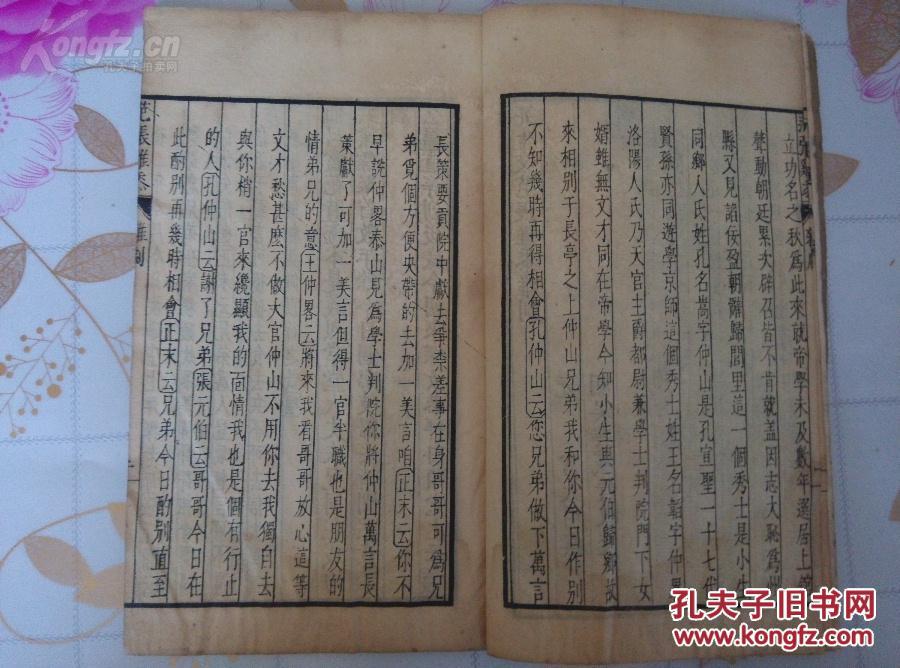 立功名之秋為此來就帝學未及數年選居上
聲動朝廷累次辟召皆不肯就盖因志大恥為州
縣又見諂佞盈朝辭歸閭里這一個秀士是小生
同鄉人氏姓孔名嵩字仲山是孔宣聖一十七代
賢孫亦同遊學京師這個秀士姓王名韜字仲畧
洛陽人氏乃天官主爵都尉兼學士判院門下女
婿雖無文才同在帝學今知小生與元伯歸鄉故
來相別于長亭之上仲山兄弟我和你今日作別
不知幾時再得相會孔仲山云您兄弟做下萬言
長策要貢院中獻去爭柰差事在身哥哥可為兄
弟覓個方便央帶的去加一美言咱正末云你不
早說仲畧泰山見為學士判院你將仲山萬言長
策獻了可加一美言但得一官半職也是朋友的
情弟兄的意王仲畧云將來我看哥哥放心這等
文才愁甚麽不做大官仲山不用你去我獨自去
與你梢一官來纔顯我的面情我也是個有行止
的人孔仲山云謝了兄弟張元伯云哥哥今日在
此酌別再幾時相會正末云兄弟今日酌別直至
范張雞黍
雜劇
Kongfz.cn
孔夫子拍卖网
孔夫子旧书网
www.Kongfz.com